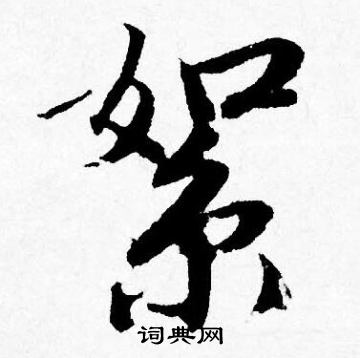 絮
词典网